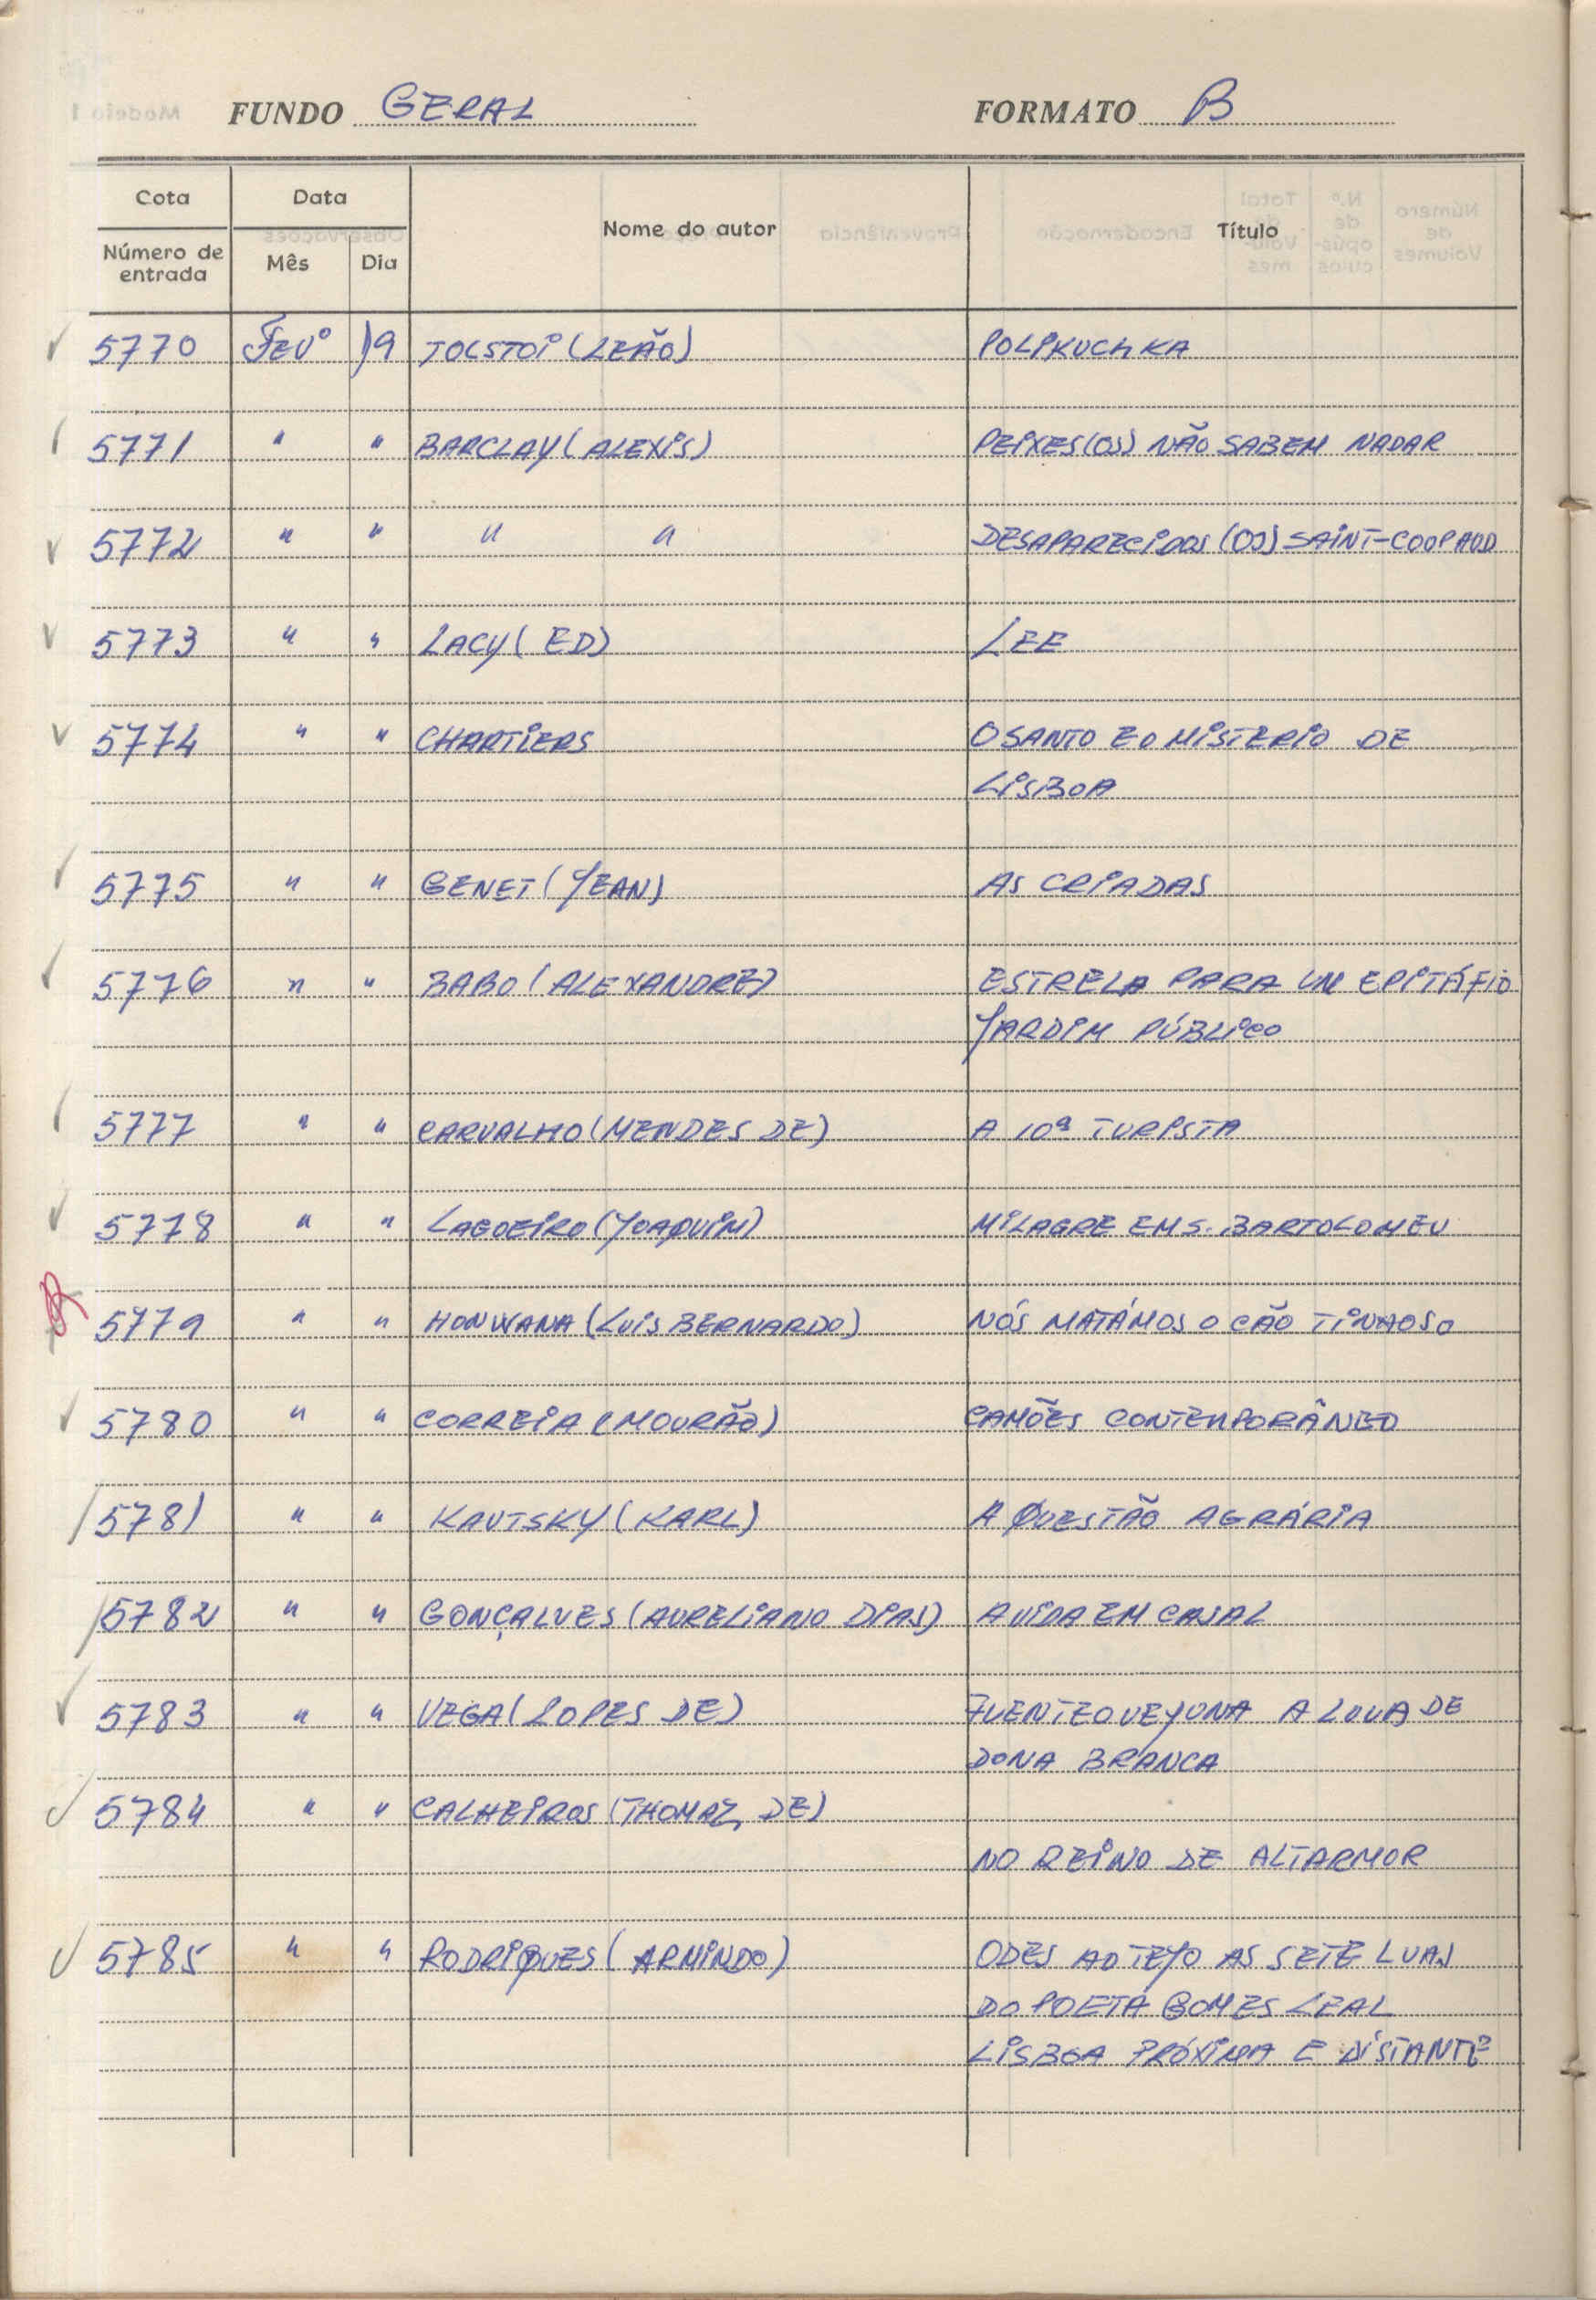 FUNDO GERAL FORMATO B
Cota Data Nome do autor Título
Número de entrada Mês Dia
5770 Fevº 19 TOLSTOI (LEÃO) POLIKUCHKA
5771 " " BARCLAY (ALEXIS) PEIXES (OS) NÃO SABEM NADAR
5772 " " " " DESAPARECIDOS (OS) SAINT-
5773 " " LACY (ED) LEE
5774 " " CHARTIERS O SANTO E O MISTERIO DE
LISBOA
5775 " " GENET (JEAN) AS CRIADAS
5776 " " BABO (ALEXANDRE) ESTRELA PARA UM EPITÁFIO
JARDIM PÚBLICO
5777 " " CARVALHO (MENDES DE) A 10ª TURISTA
5778 " " LAGOEIRO (JOAQUIM) MILAGRE EM S. BARTOLOMEU
5779 " " HONWANA (LUIS BERNARDO) NÓS MATÁMOS O CÃO TINHOSO
5780 " " CORREIA (MOURÃO) CAMÕES CONTEMPORÂNEO
5781 " " KAUTSKY (KARL) A QUESTÃO AGRÁRIA
5782 " " GONÇALVES (AURELIANO DIAS) A VIDA EM CASAL
5783 " " VEGA (LOPES DE) FUENTEOVEJUNA A LUVA DE
DONA BRANCA
5784 " " CALHEIROS (THOMAZ DE)
NO REINO DE ALTARMOR
5785 " " RODRIGUES (ARMINDO) ODES AO TEJO AS SETE LUAS
DO POETA GOMES LEAL
LISBOA PRÓXIMA E DISTANTE